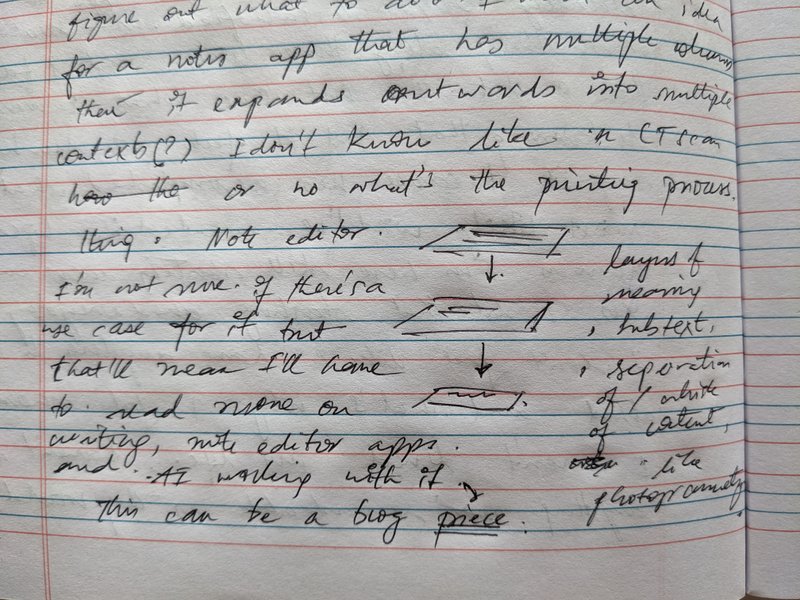 figure out what to do. I an idea
for a notes app that has multiple columns
then it expands outwords into multiple
contexts(?) I don't know like in CT scan
how the or no what's the printing process.
thing. Note editor.
I'm not sure if there's a
use case for it but
that'll mean I'll have
to read more on
writing, note editor apps.
and AI working with it.
This can be a blog piece.
layers of
meaning
, subtext,
, separation
of / white
of content,
like
photogrammetry